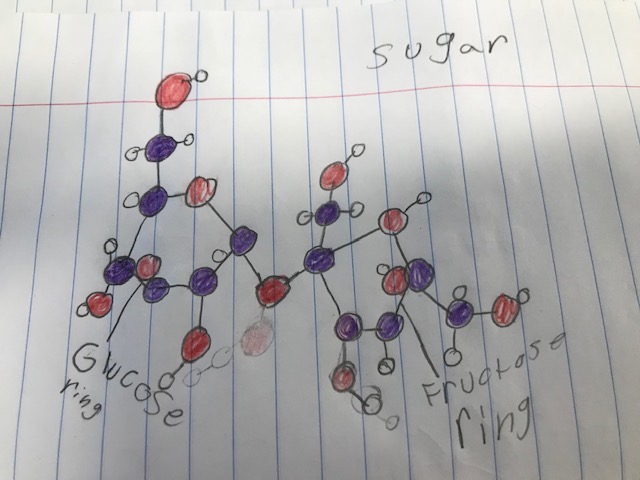 sugar
Glucose
ring
Fructose
ring